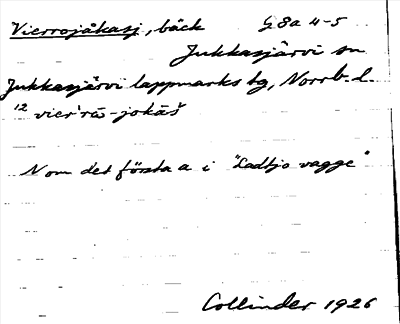 Vierrojåkasj, bäck G 8a 4-5
Jukkasjärvi sn
Jukkasjärvi lappmarks tg, Norrb. l.
12 vier'rū-jokāš
N om det första a i "Ladtjo vagge"
Collinder 1926